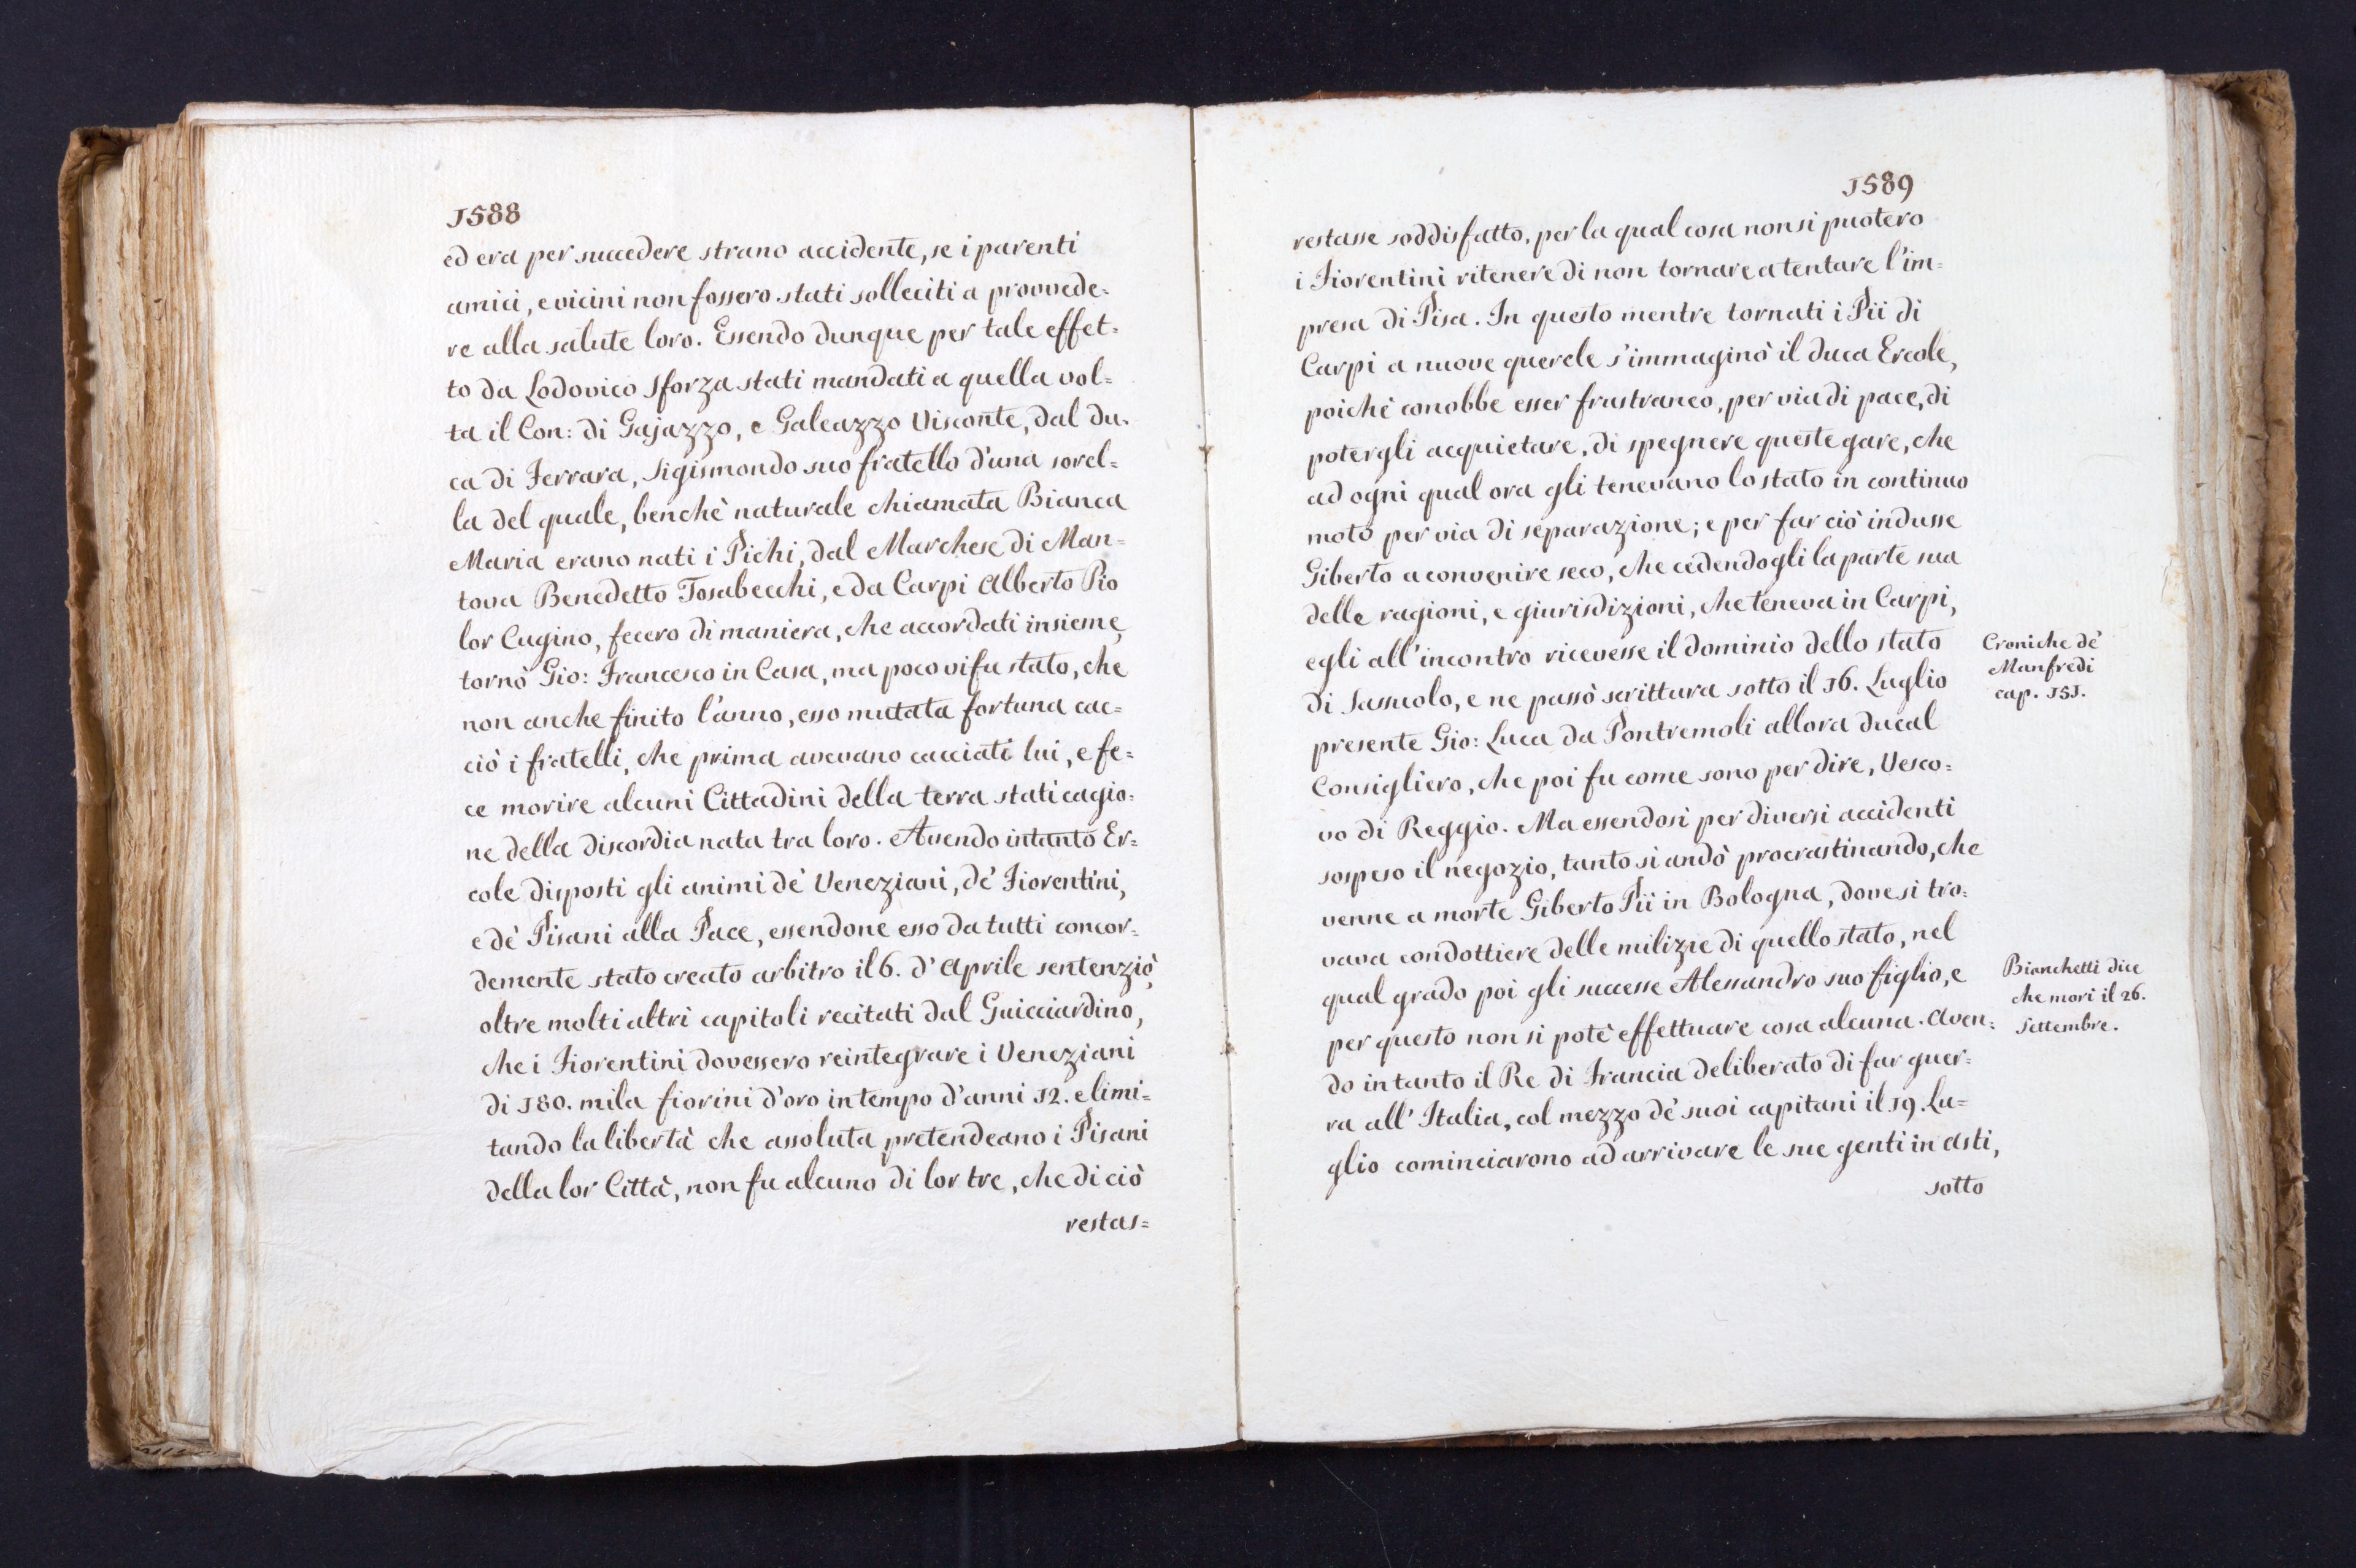 1588
ed era per succedere strano accidente, se i parenti
amici, e vicini non fossero stati solleciti a provvede=
re alla salute loro. Essendo dunque per tale effet=
to da Lodovico Sforza stati mandati a quella vol=
ta il Con: di Gajazzo, e Galeazzo Visconte, dal du=
ca di Ferrara, Sigismondo suo fratello d'una sorel=
la del quale, benchè naturale chiamata Bianca
Maria erano nati i Pichi, dal Marchese di Man=
tova Benedetto Tosabecchi, e da Carpi Alberto Pio
lor Cugino, fecero di maniera, che accordati insieme,
tornò Gio: Francesco in Casa, ma poco vi fu stato, che
non anche finito l'anno, esso mutata fortuna cac=
ciò i fratelli, che prima avevano cacciati lui, e fe=
ce morire alcuni Cittadini della terra stati cagio=
ne della discordia nata tra loro. Avendo intanto Er=
cole disposti gli animi de' Veneziani, de' Fiorentini,
e de' Pisani alla Pace, essendone esso da tutti concor=
demente stato creato arbitro il 6. d'Aprile sentenziò,
oltre molti altri capitoli recitati dal Guicciardino,
che i Fiorentini dovessero reintegrare i Veneziani
di 180. mila fiorini d'oro in tempo d'anni 12. e limi=
tando la libertà che assoluta pretendeano i Pisani
della lor Città, non fu alcuno di lor tre, che di ciò
restas=
1589
restasse soddisfatto, per la qual cosa non si puotero
i Fiorentini ritenere di non tornare a tentare l'im=
presa di Pisa. In questo mentre tornati i Pii di
Carpi a nuove querele s'immaginò il duca Ercole,
poichè conobbe esser frustraneo, per via di pace, di
potergli acquietare, di spegnere queste gare, che
ad ogni qual ora gli tenevano lo stato in continuo
moto per via di separazione; e per far ciò indusse
Giberto a convenire seco, che cedendogli la parte sua
delle ragioni, e giurisdizioni, che teneva in Carpi,
egli all'incontro ricevesse il dominio dello stato
di Sassuolo, e ne passò scrittura sotto il 16. Luglio
presente Gio: Luca da Pontremoli allora ducal
Consigliero, che poi fu come sono per dire, Vesco=
vo di Reggio. Ma essendosi per diversi accidenti
sospeso il negozio, tanto si andò procrastinando, che
venne a morte Giberto Pii in Bologna, dove si tro=
vava condottiere delle milizie di quello stato, nel
qual grado poi gli successe Alessandro suo figlio, e
per questo non si potè effettuare cosa alcuna. Aven=
do intanto il Re di Francia deliberato di far guer=
ra all'Italia, col mezzo de' suoi capitani il 19. Lu=
glio cominciarono ad arrivare le sue genti in Asti,
sotto
Croniche de'
Manfredi
cap. 151.
Bianchetti dice
che mori il 26.
Settembre.